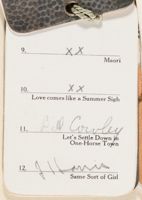 9. XX
Maori
10. XX
Love comes like a Summer Sigh
11. Cowley
Let's Settle Down in
One-Horse Town
12.
Same Sort of Girl